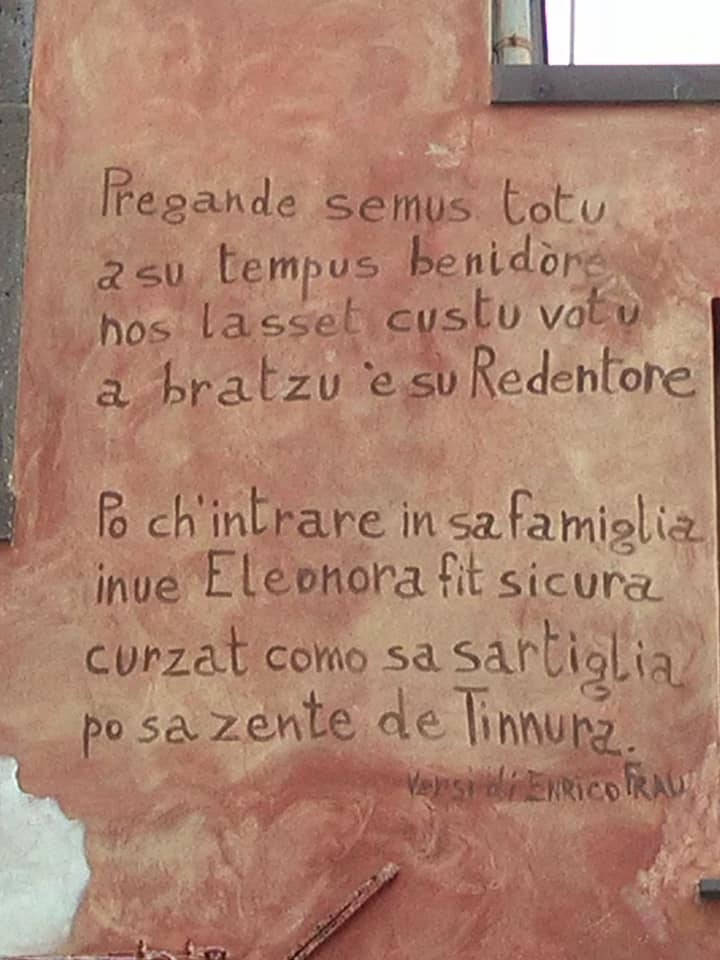 Pregande semus totu
a su tempus benidòre
nos lasset custu votu
a bratzu 'e su Redentore
Po ch'intrare in sa famiglia
inue Eleonora fit sicura
curzat como sa sartiglia
po sa zente de Tinnura.
Versi di ENRICO FRAU